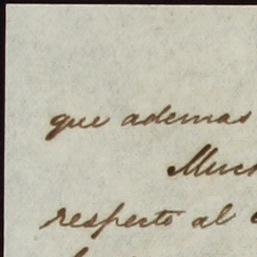 que ademas
respecto al